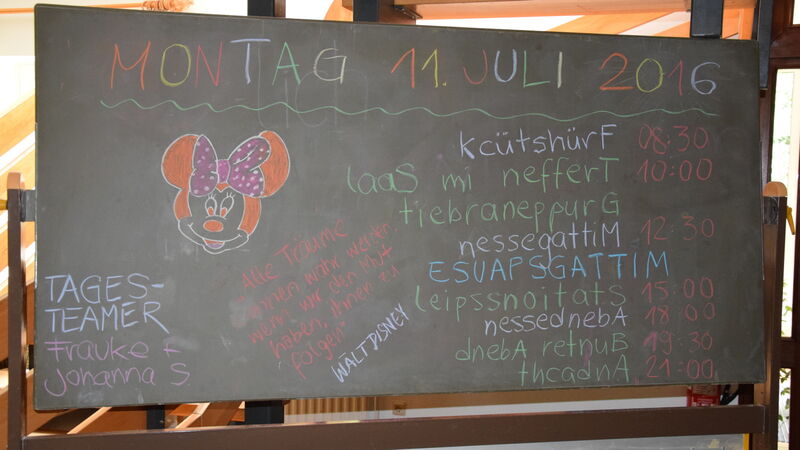 MONTAG 11. JULI 2016
kcütshürF 08:30
laaS mi nefferT 10:00
tiebraneppurG
nessegattiM 12:30
ESUAPSGATTIM
leipssnoitatS 15:00
nessednebA 18:00
dnebA retnuB 19:30
thcadnA 21:00
"Alle Träume
können wahr werden,
wenn wir den Mut
haben, ihnen zu
folgen"
WALT DISNEY
TAGES-
TEAMER
Frauke F.
Johanna S.